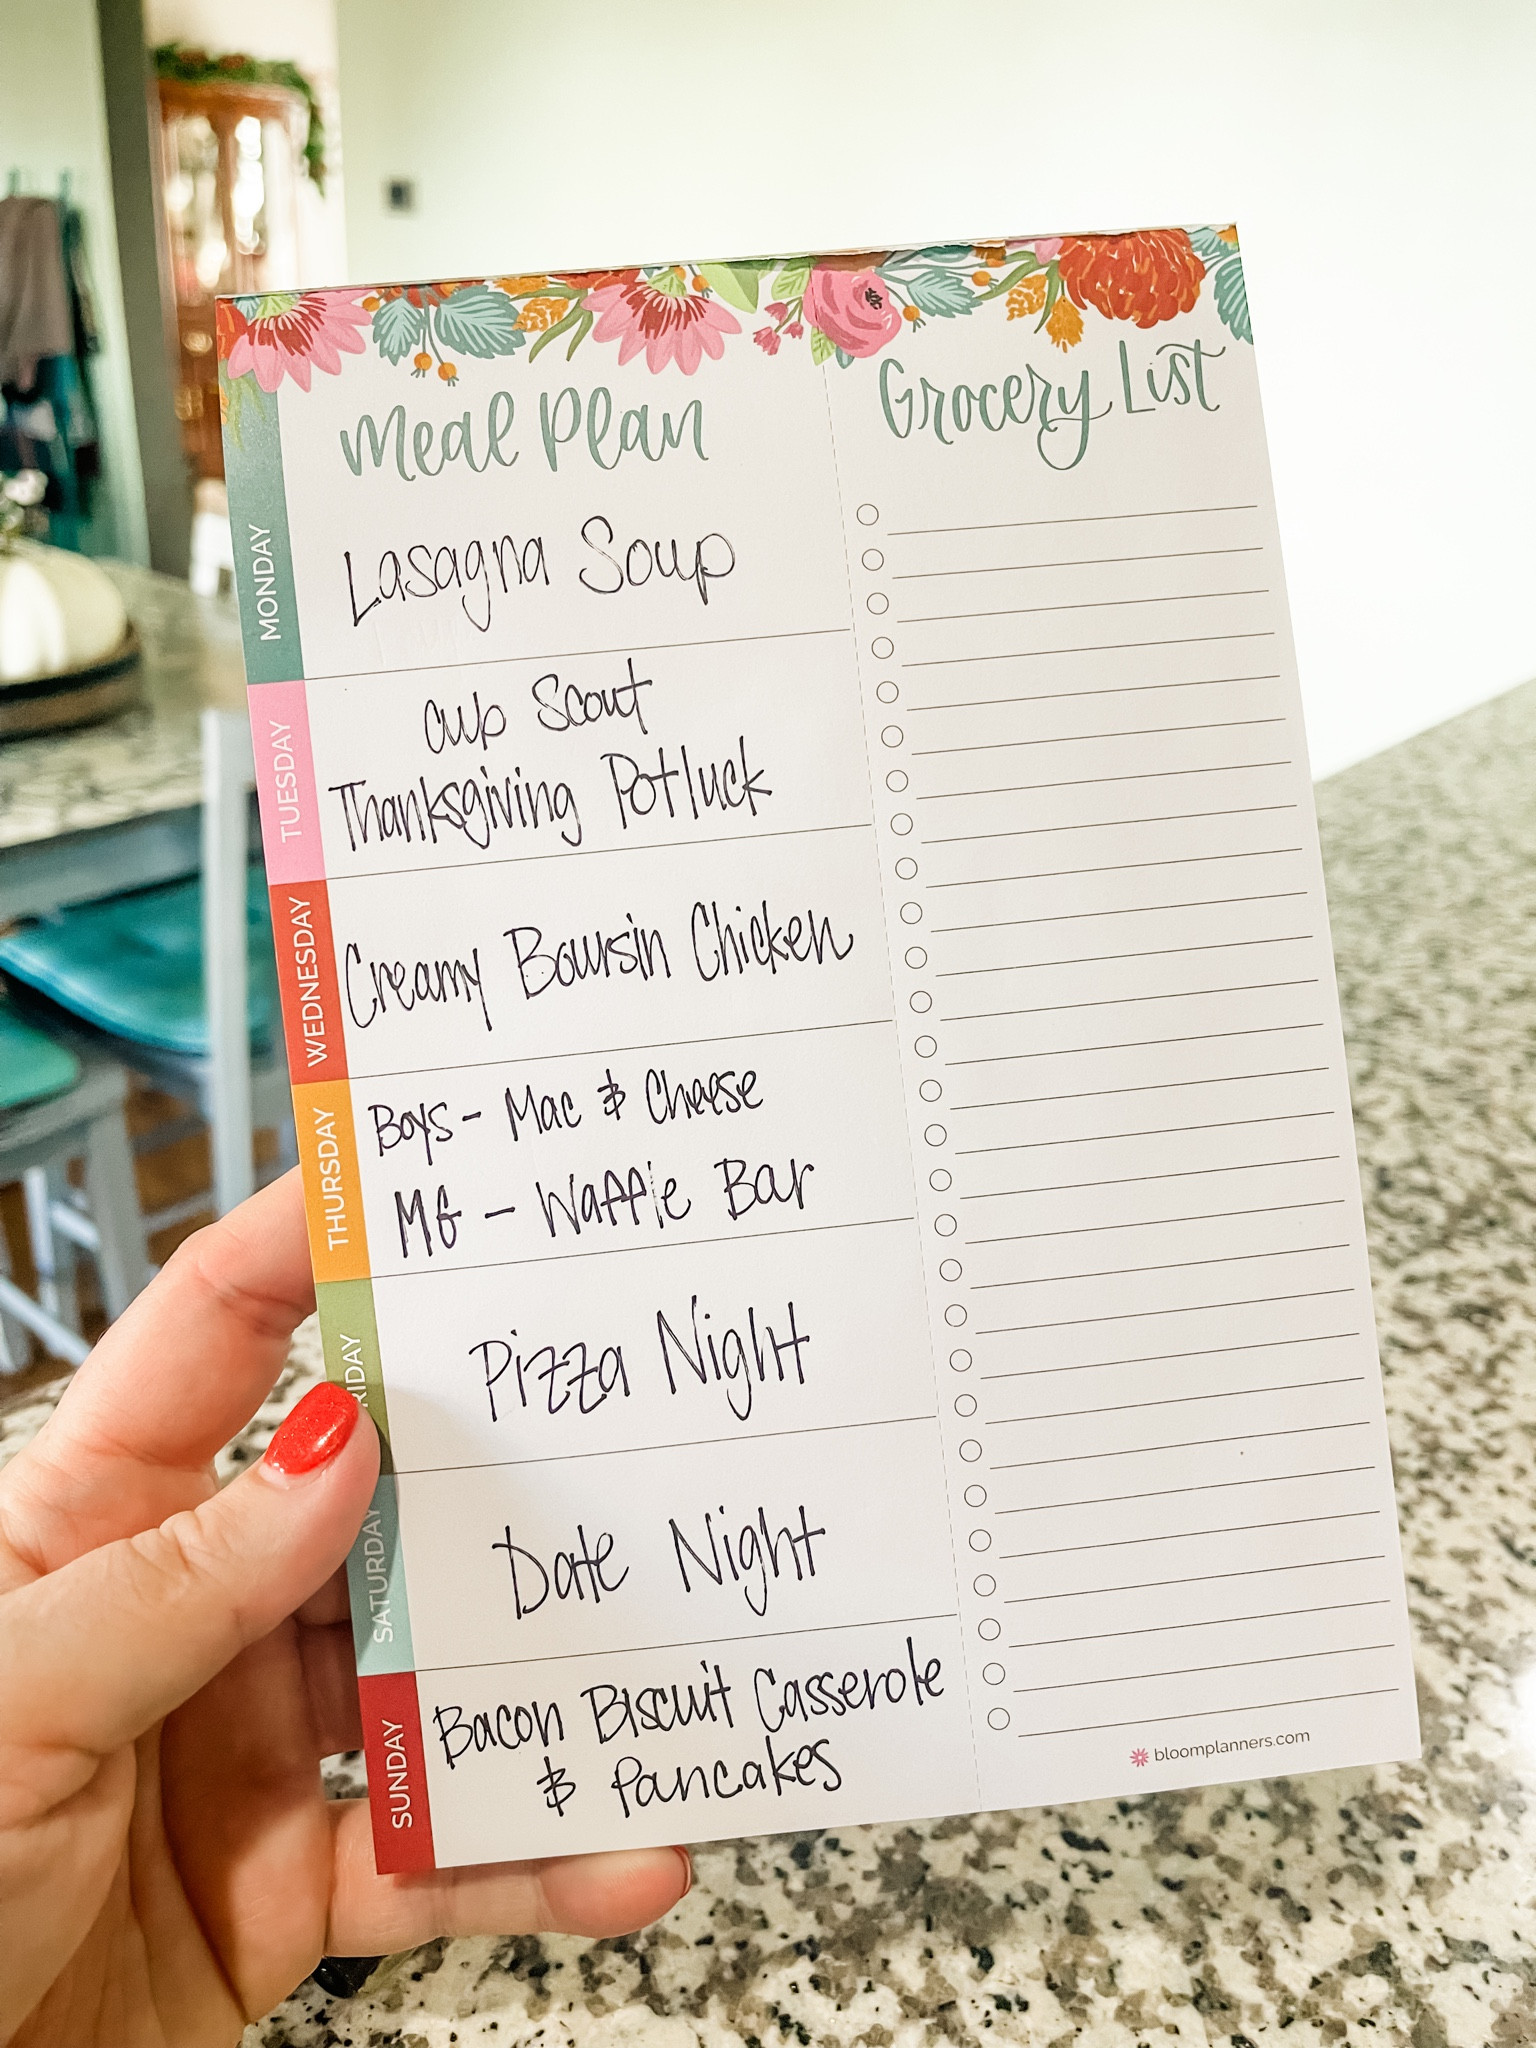 Meal Plan
Grocery List
MONDAY
Lasagna Soup
TUESDAY
Cub Scout
Thanksgiving Potluck
WEDNESDAY
Creamy Boursin Chicken
THURSDAY
Boys - Mac & Cheese
MG - Waffle Bar
RIDAY
Pizza Night
SATURDAY
Date Night
SUNDAY
Bacon Biscuit Casserole
& Pancakes
bloomplanners.com